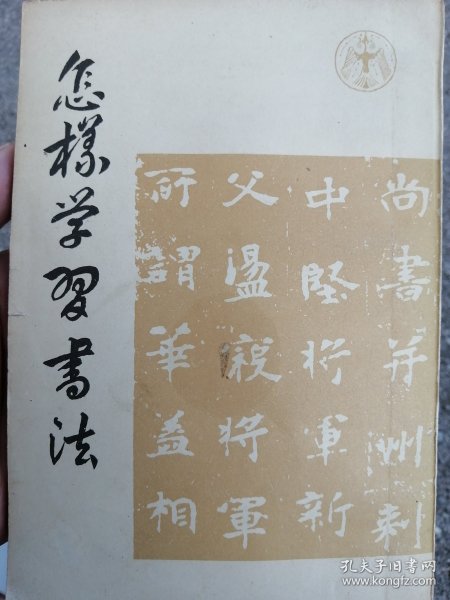 怎樣学習書法
尚書并州刺
中堅將軍新
父盪寇將軍
所謂華蓋相
孔夫子旧书网
www.kongfz.com